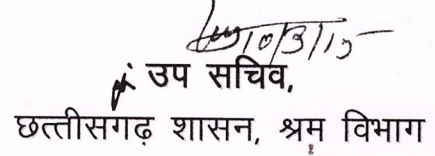 10/3/15
उप सचिव,
छत्तीसगढ़ शासन, श्रम विभाग